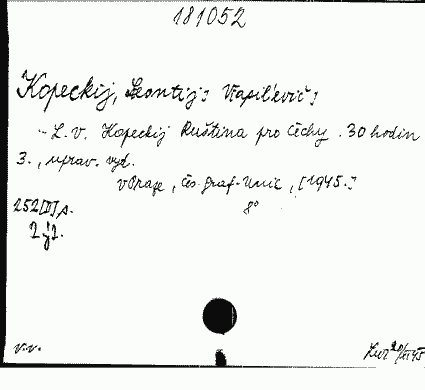 181052
Kopeckij, Leontij: Vasil'evič:
- L. V. Kopeckij Ruština pro Čechy. 30 hodin
3., uprav. vyd.
V Praze, Čes. graf. Unie, [1945.]
252 [II] s. 8°
2 j.
v.v.